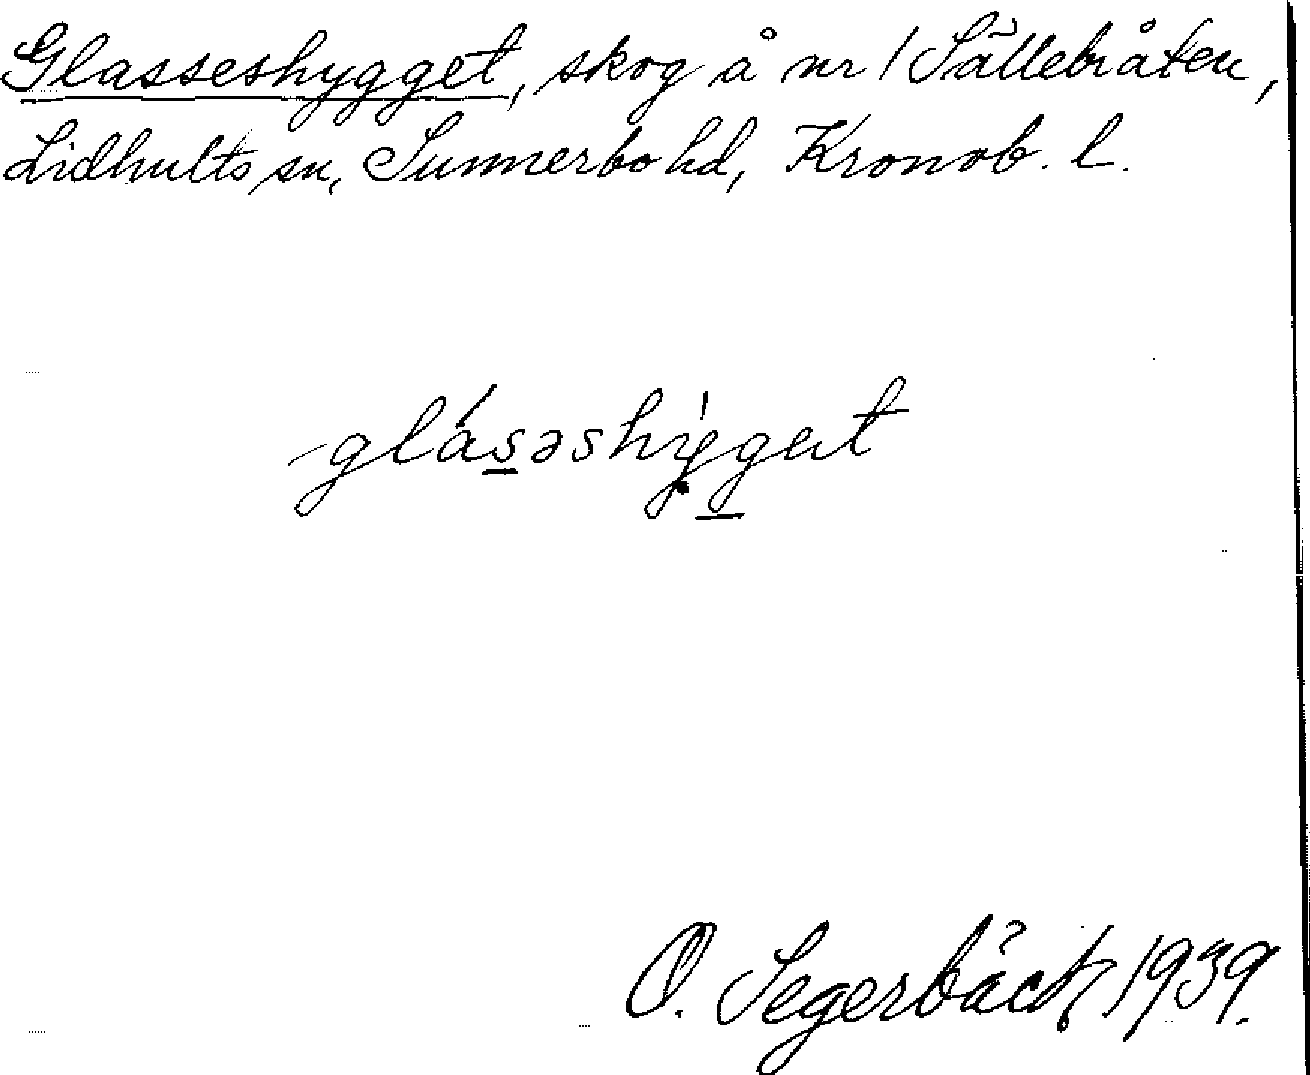 Glasseshygget, skog å nr 1 Sällebråten,
Lidhults sn, Sunnerbo hd, Kronob. l.
glásəshy̍gət
O. Segerbäck 1939.